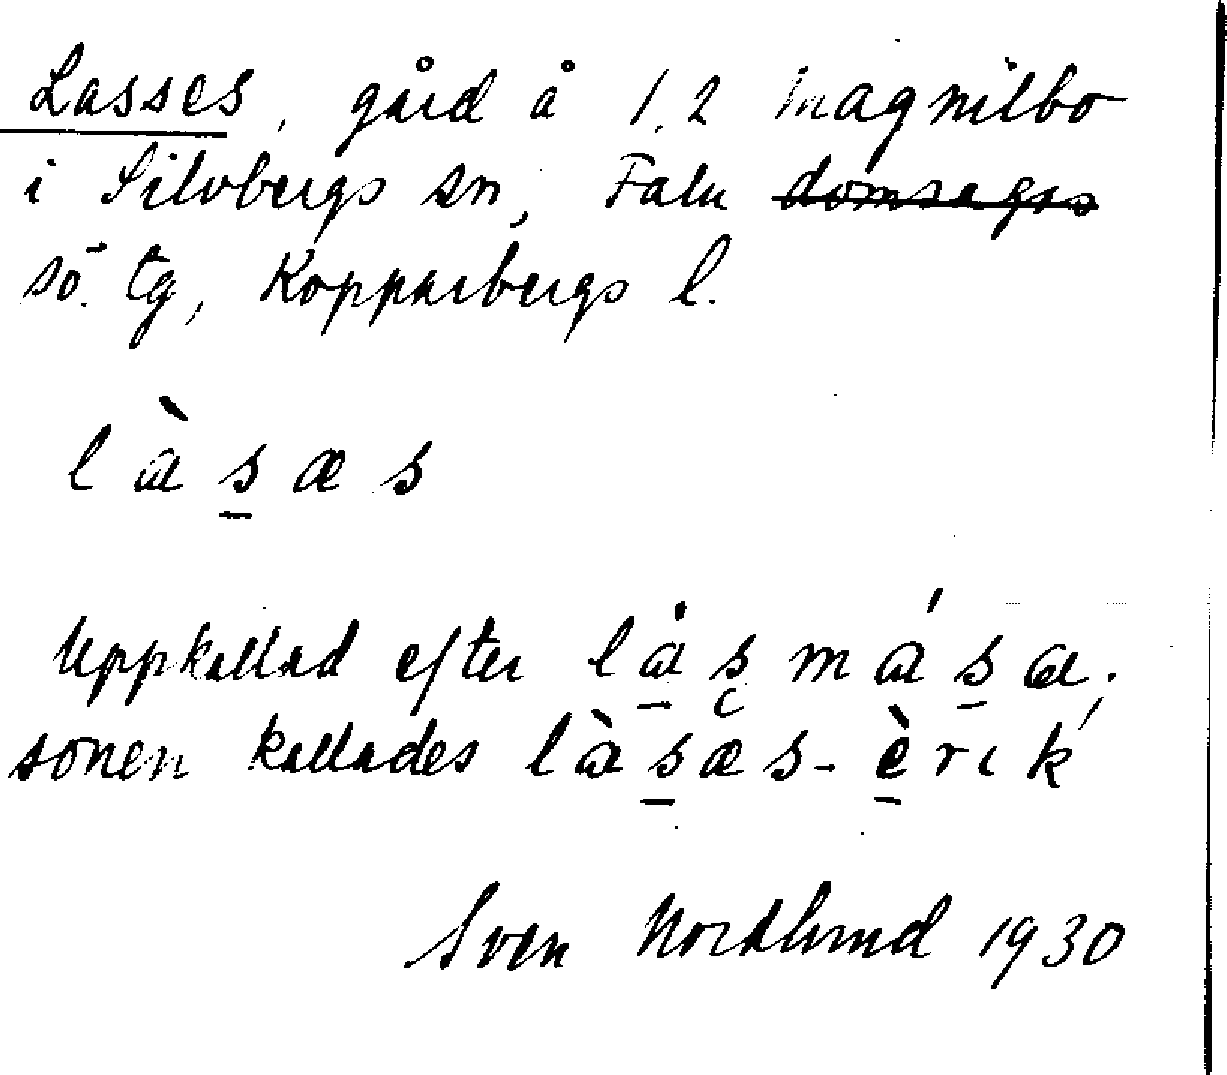 Lasses, gård å 1,2 Magnilbo
i Silvbergs sn, Falu domsagas
sö. tg, Kopparbergs l.
làs̱æs
Uppkallad efter
sonen kallades làs̱æs-è̱rık
Sven Nordlund 1930